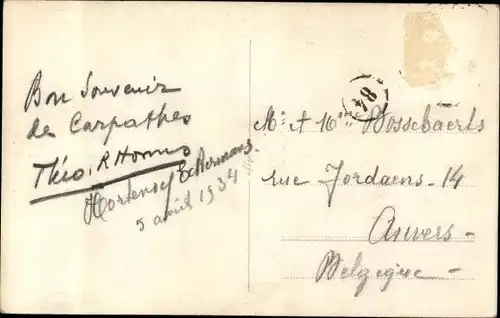 Bon Souvenir
de Carpathes
Théo. R. Homns
Hortensey Eckermans.
5 août 1934
84
Mr & Mme Bosschaerts
rue Jordaens - 14
Anvers -
Belgique -